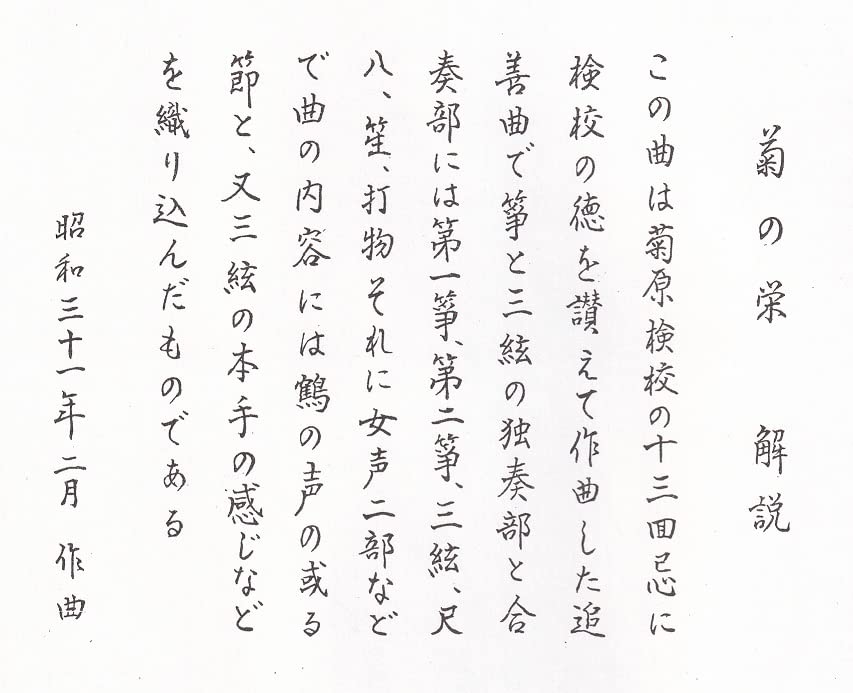 菊の栄　解説
この曲は菊原検校の十三回忌に
検校の徳を讃えて作曲した追
善曲で箏と三絃の独奏部と合
奏部には第一箏、第二箏、三絃、尺
八、笙、打物それに女声二部など
で曲の内容には鶴の声の或る
節と、又三絃の本手の感じなど
を織り込んだものである
昭和三十一年二月　作曲